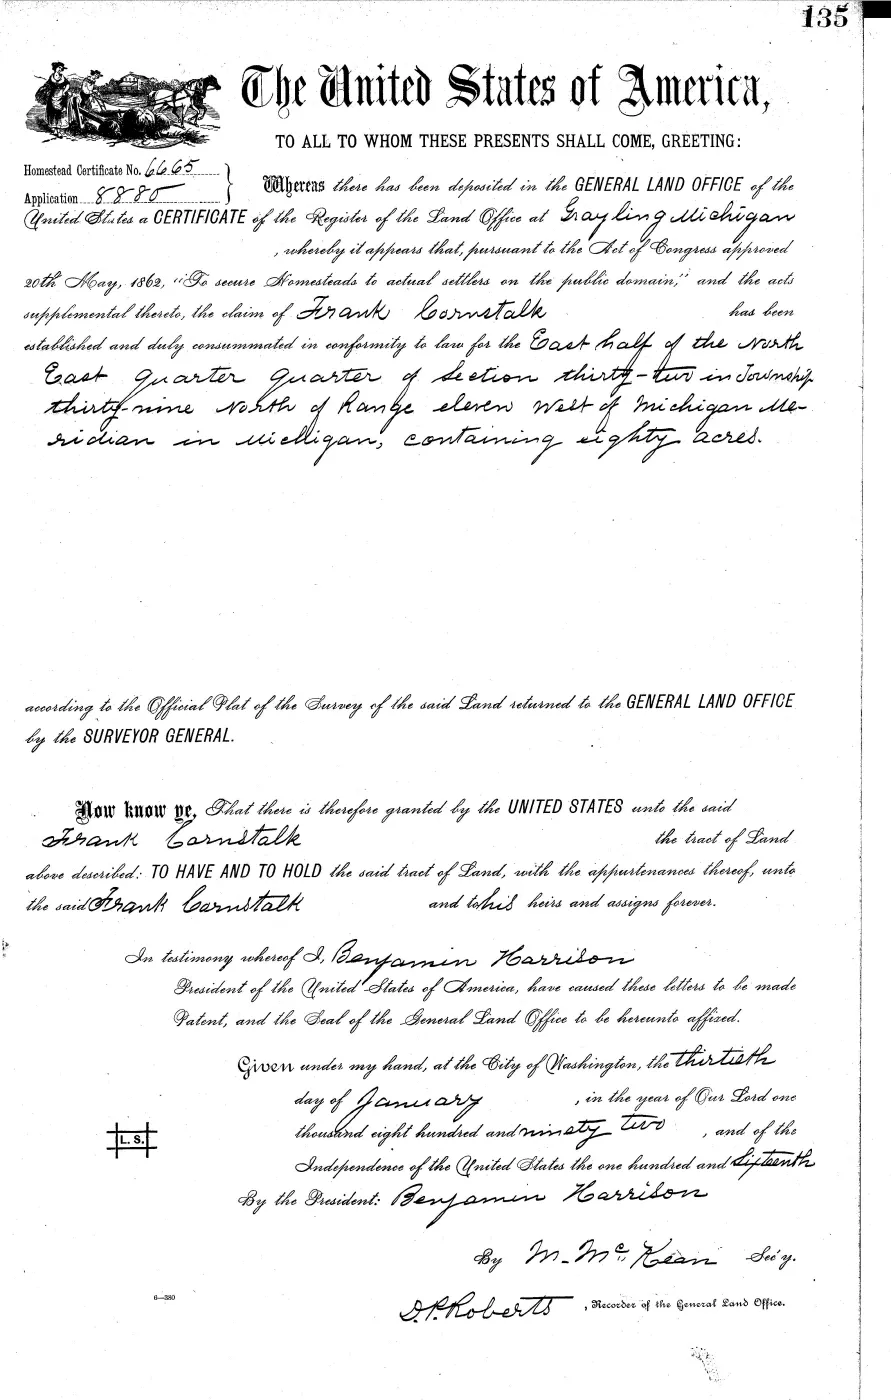 135
The United States of America,
TO ALL TO WHOM THESE PRESENTS SHALL COME, GREETING:
Homestead Certificate No. 6665
Application 8880
Whereas there has been deposited in the GENERAL LAND OFFICE of the
United States a CERTIFICATE of the Register of the Land Office at Grayling Michigan
, whereby it appears that, pursuant to the Act of Congress approved
20th May, 1862, "To secure Homesteads to actual settlers on the public domain," and the acts
supplemental thereto, the claim of Frank Cornstalk has been
established and duly consummated in conformity to law for the East half of the North
East quarter quarter of Section thirty-two in Township
thirty-nine North of Range eleven West of Michigan Me-
ridian in Michigan, containing eighty acres.
according to the Official Plat of the Survey of the said Land returned to the GENERAL LAND OFFICE
by the SURVEYOR GENERAL.
Now know ye, That there is therefore granted by the UNITED STATES unto the said
Frank Cornstalk the tract of Land
above described: TO HAVE AND TO HOLD the said tract of Land, with the appurtenances thereof, unto
the said Frank Cornstalk and to his heirs and assigns forever.
In testimony whereof I, Benjamin Harrison
President of the United States of America, have caused these letters to be made
Patent, and the Seal of the General Land Office to be hereunto affixed.
Given under my hand, at the City of Washington, the thirtieth
day of January , in the year of Our Lord one
thousand eight hundred and ninety two , and of the
Independence of the United States the one hundred and sixteenth
L. S.
By the President: Benjamin Harrison
By M. McKean Sec'y.
6—380
D.P. Roberts , Recorder of the General Land Office.